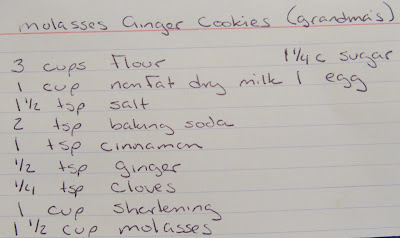 molasses Ginger Cookies (grandma's)
3 cups flour 1 1/4 c sugar
1 cup nonfat dry milk 1 egg
1 1/2 tsp salt
2 tsp baking soda
1 tsp cinnamon
1/2 tsp ginger
1/4 tsp cloves
1 cup shortening
1 1/2 cup molasses